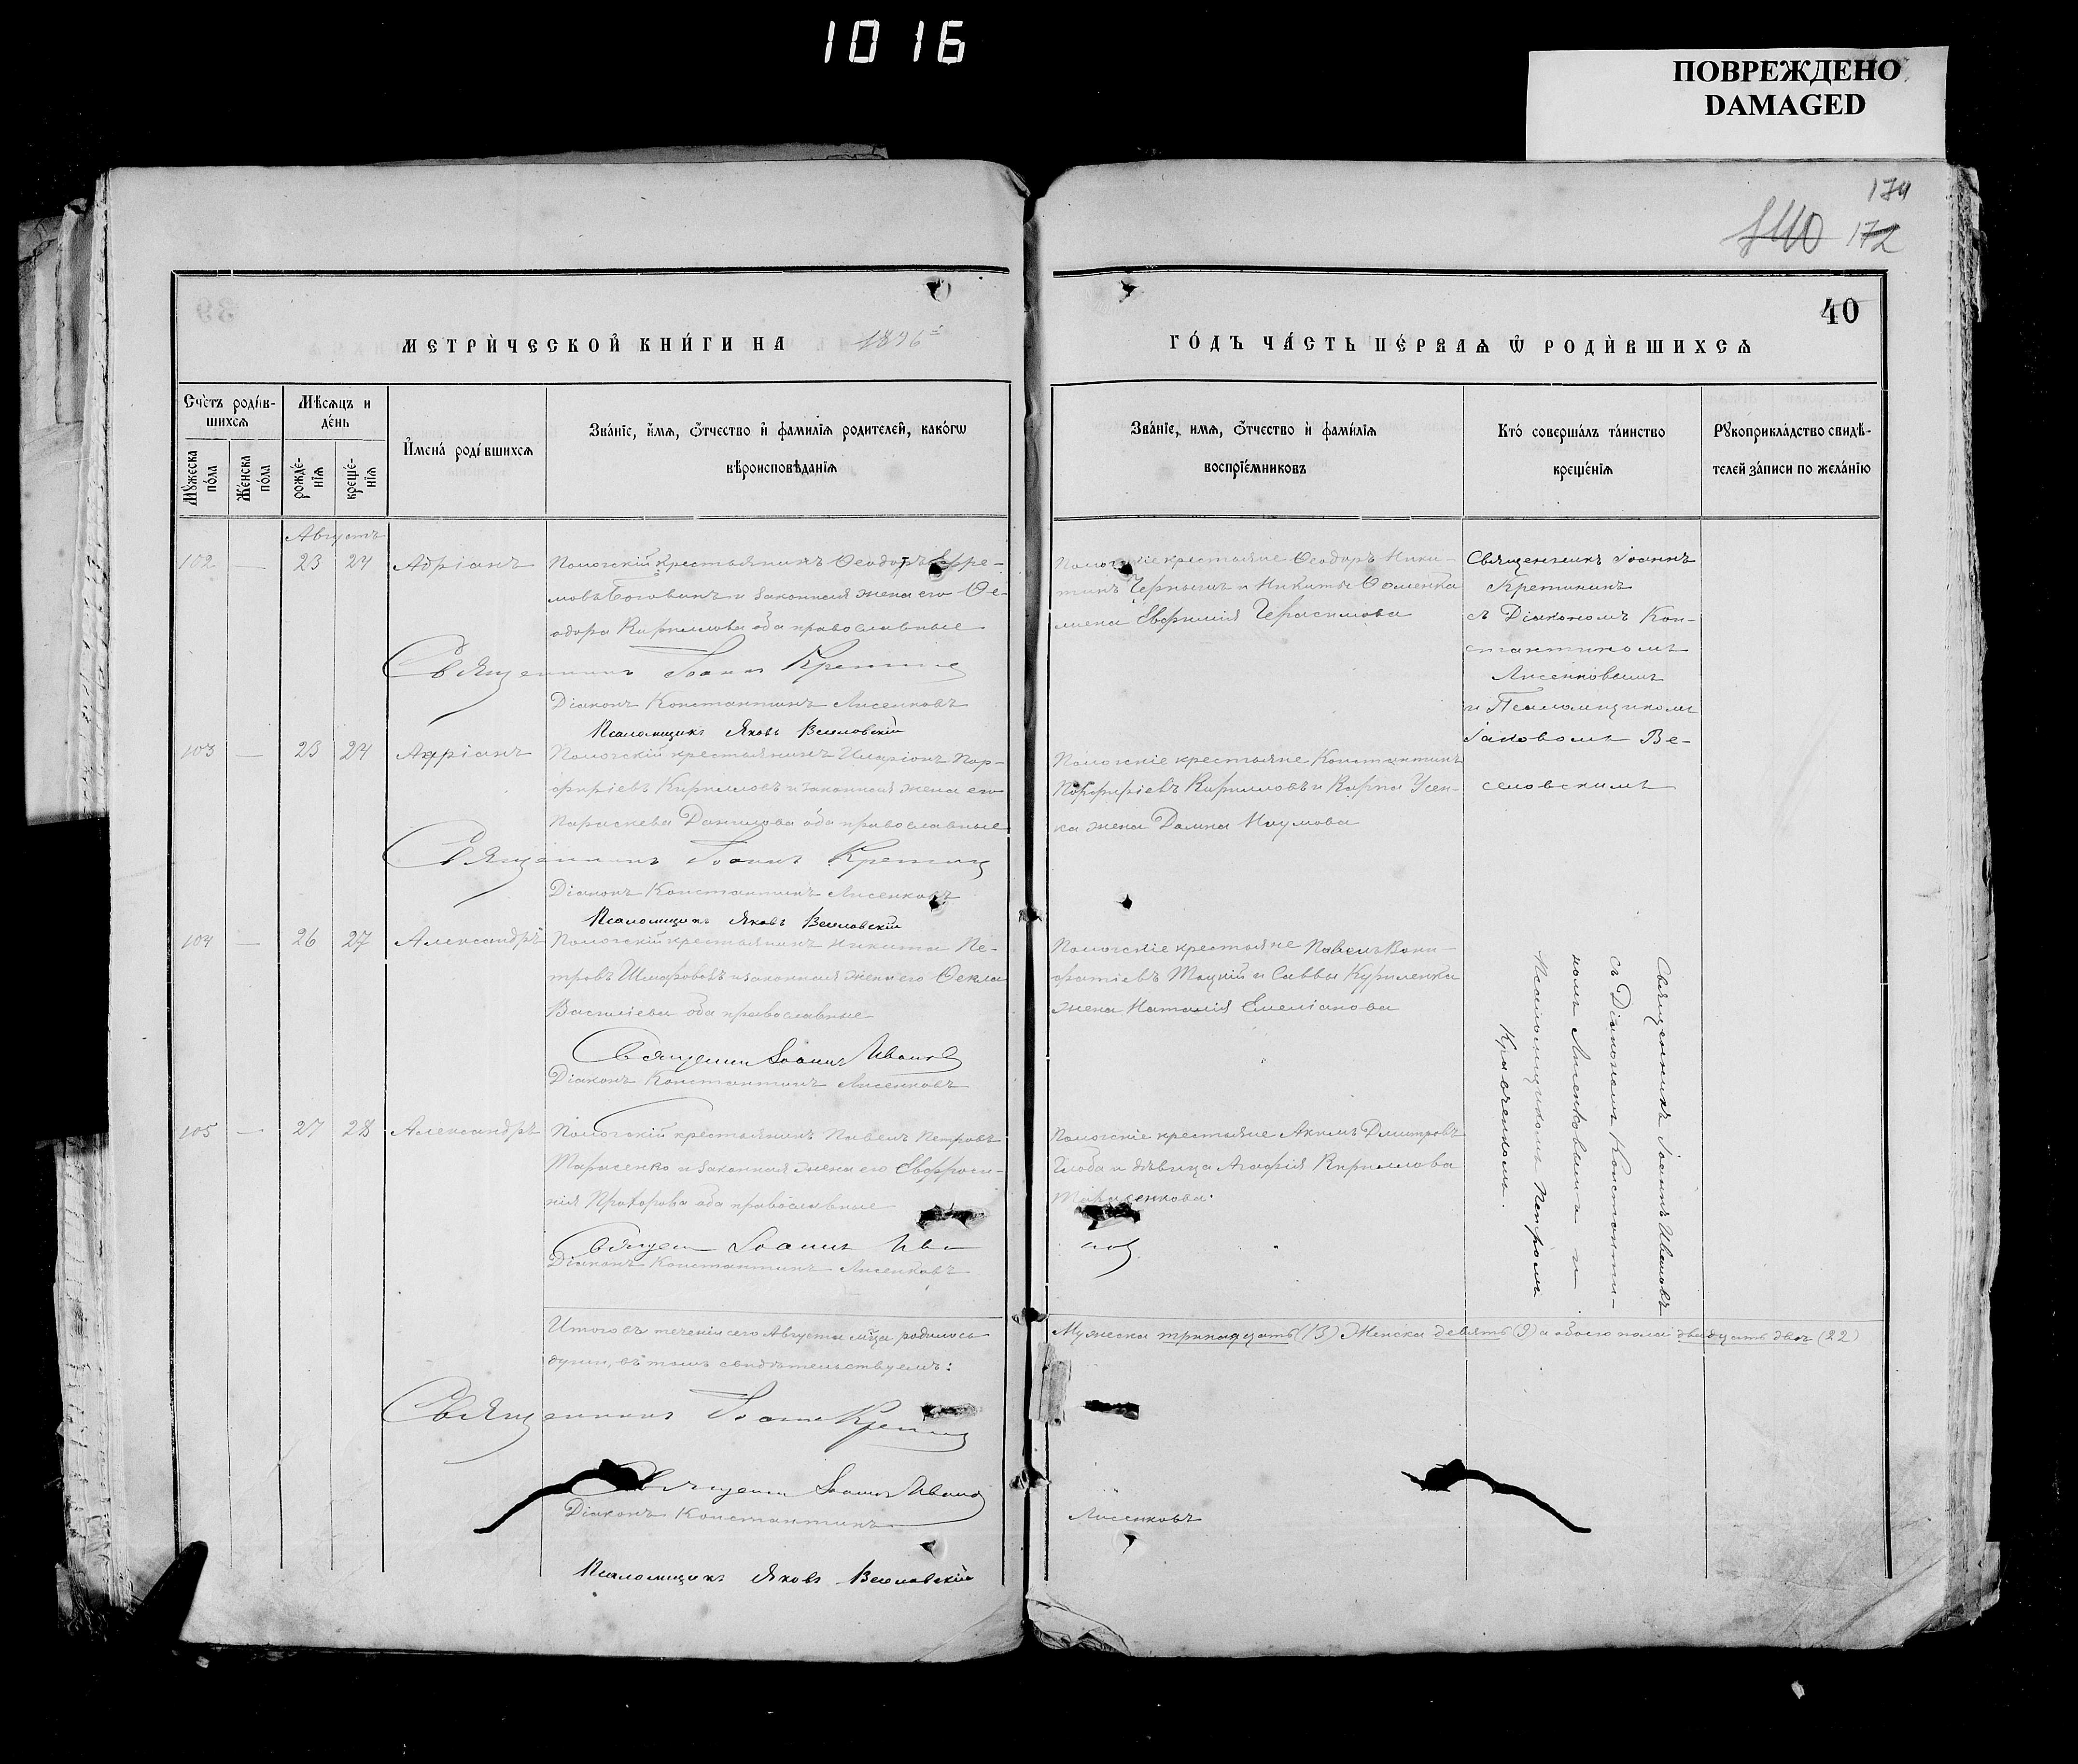 1016
ПОВРЕЖДЕНО
DAMAGED
174
172
40
МЕТРИ́ЧЕСКОЙ КНИ́ГИ НА 1896 г
ГО́ДЪ ЧА́СТЬ ПЕ́РВАѦ Ѿ РОДИ́ВШИХСѦ
Сче́тъ роди́в-
шихсѧ
Мѣ́сѧцъ и
де́нь
Мꙋ́жеска по́ла
Же́нска по́ла
рожде́-
нїѧ
креще́-
нїѧ
И҆мена̀ роди́вшихсѧ
Зва́нїе, и҆́мѧ, ѻ҆́тчество и҆ фами́лїѧ родителей, како́гѡ
вѣроисповѣ́данїѧ
Зва́нїе, имѧ, ѻ҆́тчество и҆ фами́лїѧ
воспрїе́мниковъ
Кто́ соверша́лъ та́инство
креще́нїѧ
Рꙋкоприкла́дство свидѣ́-
телей за́писи по жела́нїю
Августъ
102 — 23 24 Адріанъ
Пологскій крестьянинъ Ѳеодоръ Ефре-
мовъ Боговинъ и законная жена его Ѳе-
одора Кириллова оба православные
Священникъ Іоаннъ Кретинин
Діаконъ Константинъ Лисенковъ
Псаломщикъ Яковъ Веселовскій
Пологскіе крестьяне Ѳеодоръ Ники-
тинъ Чернышъ и Никиты Ѳоменка
жена Евфимія Герасимова
Священникъ Іоаннъ
Кретининъ
съ Діакономъ Кон-
стантиномъ
Лисенковымъ
и Псаломщикомъ
Іаковомъ Ве-
селовскимъ
103 — 23 24 Адріанъ
Пологскій крестьянинъ Иларіонъ Пор-
фиріевъ Кирилловъ и законная жена его
Параскева Данилова оба православные
Священникъ Іоаннъ Кретинин
Діаконъ Константинъ Лисенковъ
Псаломщикъ Яковъ Веселовскій
Пологскіе крестьяне Константинъ
Порфиріевъ Кирилловъ и Карпа Усен-
ка жена Домна Наумова
104 — 26 27 Александръ
Пологскій крестьянинъ Никита Пе-
тровъ Шмаровозъ и законная жена его Ѳекла
Василіева оба православные
Священникъ Іоаннъ Ивановъ
Діаконъ Константинъ Лисенковъ
Пологскіе крестьяне Павелъ Вони-
фатіевъ Тоцкій и Саввы Куриленка
жена Наталія Емеліанова
Священникъ Іоаннъ Ивановъ
съ Діакономъ Константи-
номъ Лисенковымъ и
Псаломщикомъ Петромъ
Кривченкомъ.
105 — 27 28 Александръ
Пологскій крестьянинъ Павелъ Петровъ
Тарасенко и законная жена его Евфроси-
нія Прохорова оба православные
Священ Іоаннъ Ива
новъ
Діаконъ Константинъ Лисенковъ
Пологскіе крестьяне Акимъ Дмитровъ
Глоба и дѣвица Агафія Кириллова
Тарасенкова.
Итого въ теченіи сего Августа м-ца родилось
души, въ томъ свидѣтельствуемъ:
Мужеска тринадцать (13) Женска девять (9) а обоего пола двадцать два (22)
Священникъ Іоаннъ Кретинин
Священ Іоаннъ Ивановъ
Діаконъ Константинъ
Лисенковъ
Псаломщикъ Яковъ Веселовскій